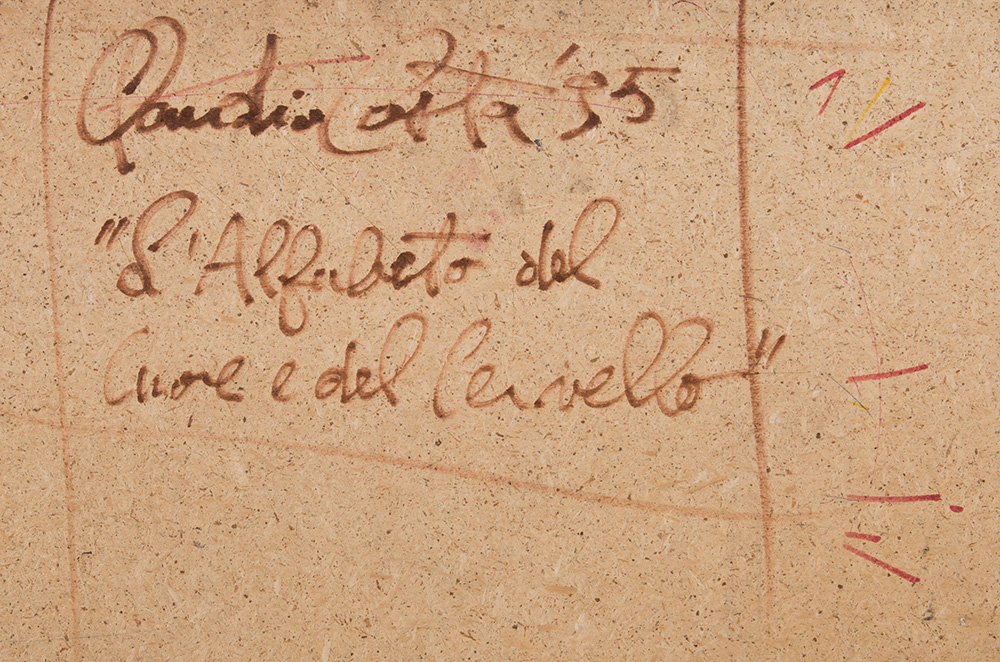 Claudio Costa '95
"L'Alfabeto del
Cuore e del Cervello"